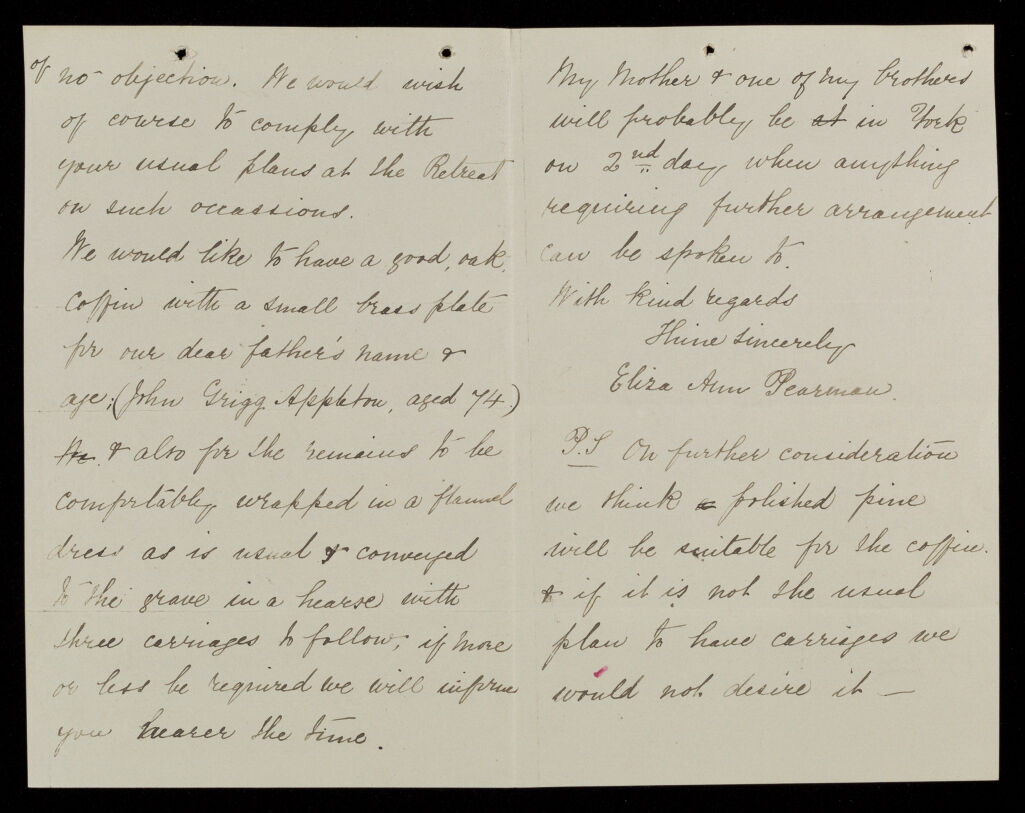 of no objection. We would wish
of course to comply with
your usual plans at the Retreat
on such occassions.
We would like to have a good, oak,
coffin with a small brass plate
for our dear father's name &
age; (John Grigg Appleton, aged 74)
We & also for the remains to be
comfortably wrapped in a flannel
dress as is usual & conveyed
to the grave in a hearse with
three carriages to follow; if more
or less be required we will inform
you nearer the time.
My Mother & one of my brothers
will probably be at in York
on 2nd day when anything
requiring further arrangement
can be spoken to.
With kind regards
Thine sincerely
Eliza Ann Pearman.
P.S On further consideration
we think a polished pine
will be suitable for the coffin.
& if it is not the usual
plan to have carriages we
would not desire it —